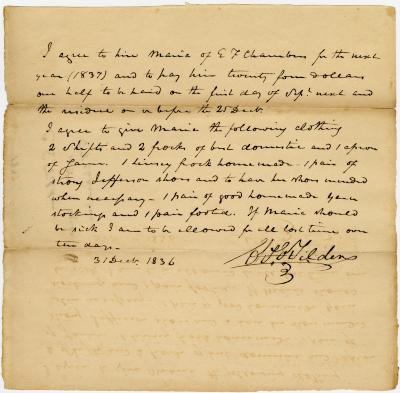 I agree to hire Maria of E F Chambers for the next
year (1837) and to pay him twenty four Dollars
one half to be paid on the first day of Sept. next and
the residue on or before the 25 Decb.
I agree to give Maria the following clothing
2 Shifts and 2 frocks of best domestic and 1 apron
of same. 1 linsey frock homemade - 1 pair of
strong Jefferson shoes and to have her shoes mended
when necessary - 1 pair of good homemade yarn
stockings and 1 pair footed. If Maria should
be sick I am to be allowed for all lost time over
ten days -
31 Decb. 1836
Tilden